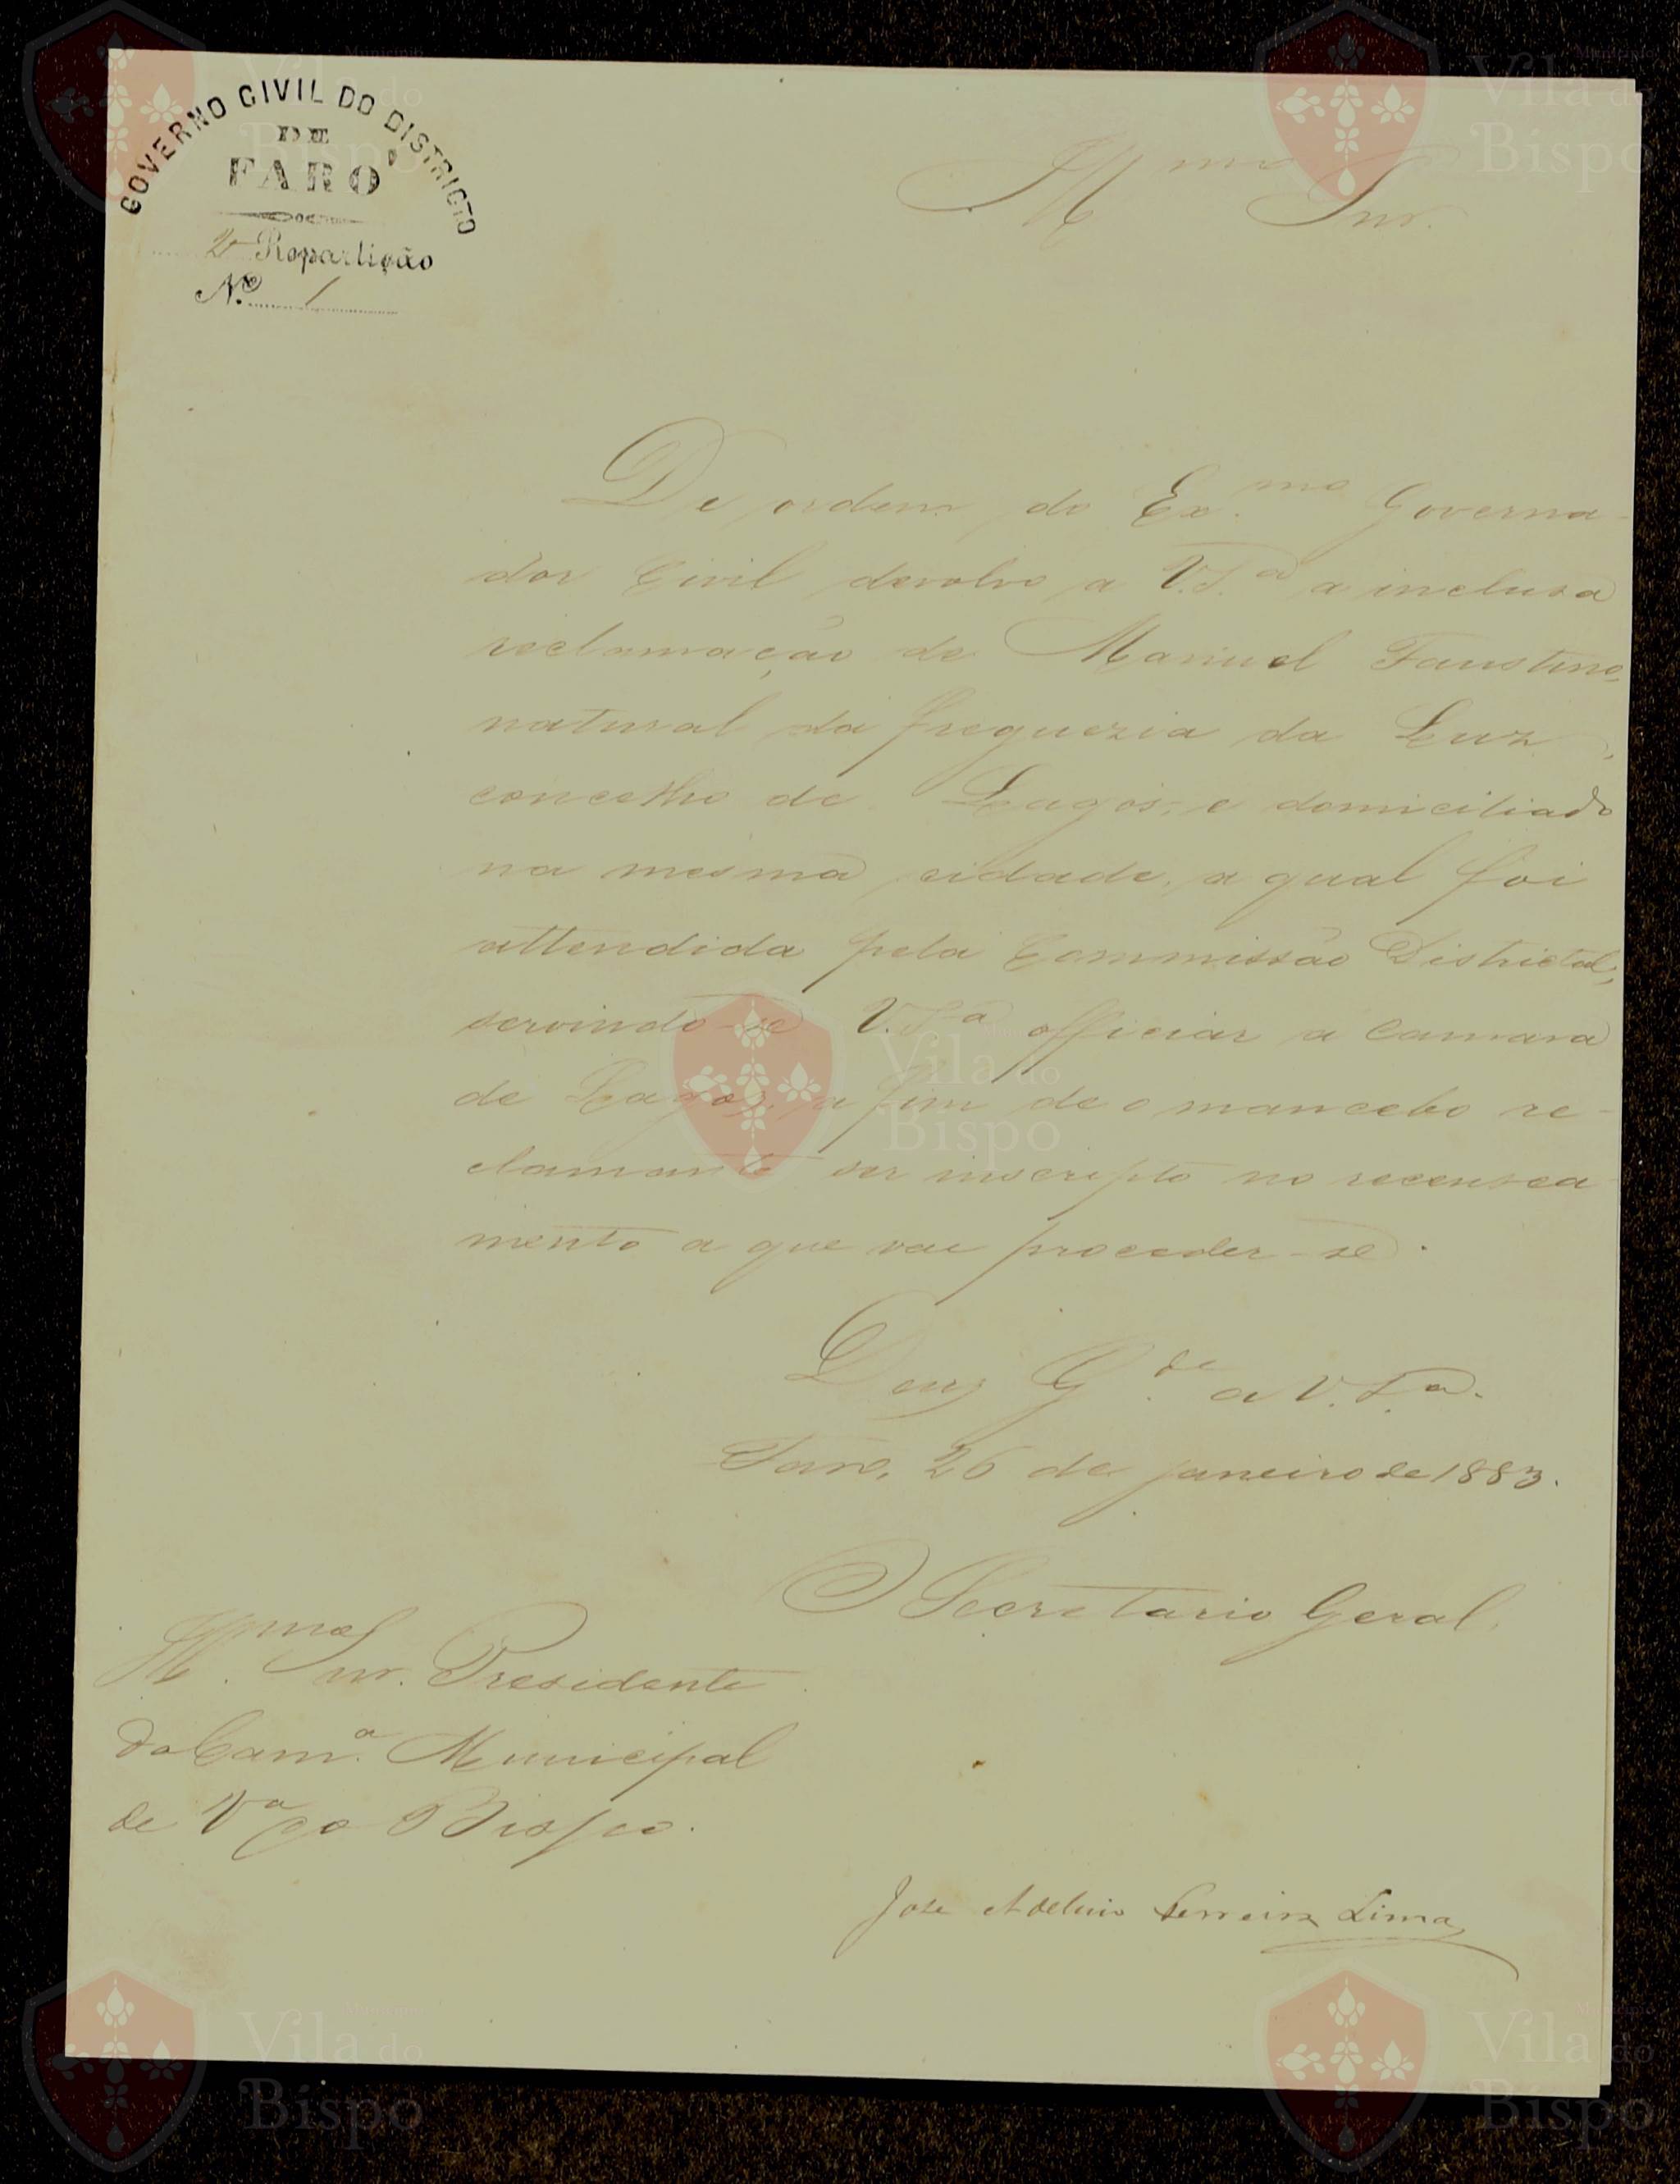 GOVERNO CIVIL DO DISTRICTO
DE
FARO
2ª Repartição
N.º 1
Ill.mo Snr.
De ordem do Ex.mo Governa-
dor Civil devolvo a V.S.ª a inclusa
reclamação de Manuel Faustino,
natural da freguezia da Luz,
concelho de Lagos, e domiciliado
na mesma cidade, a qual foi
attendida pela Commissão Districtal,
servindo-se V.S.ª officiar a Camara
de Lagos, a fim de o mancebo re-
clamante ser inscripto no recensea-
mento a que vae proceder-se.
Deus G.de a V.S.ª
Faro, 26 de janeiro de 1883.
O Secretario Geral
Ill.mo Snr. Presidente
da Cam.ª Municipal
de Vª do Bispo.
José Adelino Ferreira Lima
Município
Vila do
Bispo
Município
Vila do
Bispo
Vila do
Bispo
Município
Vila do
Bispo
Município
Vila do
Bispo